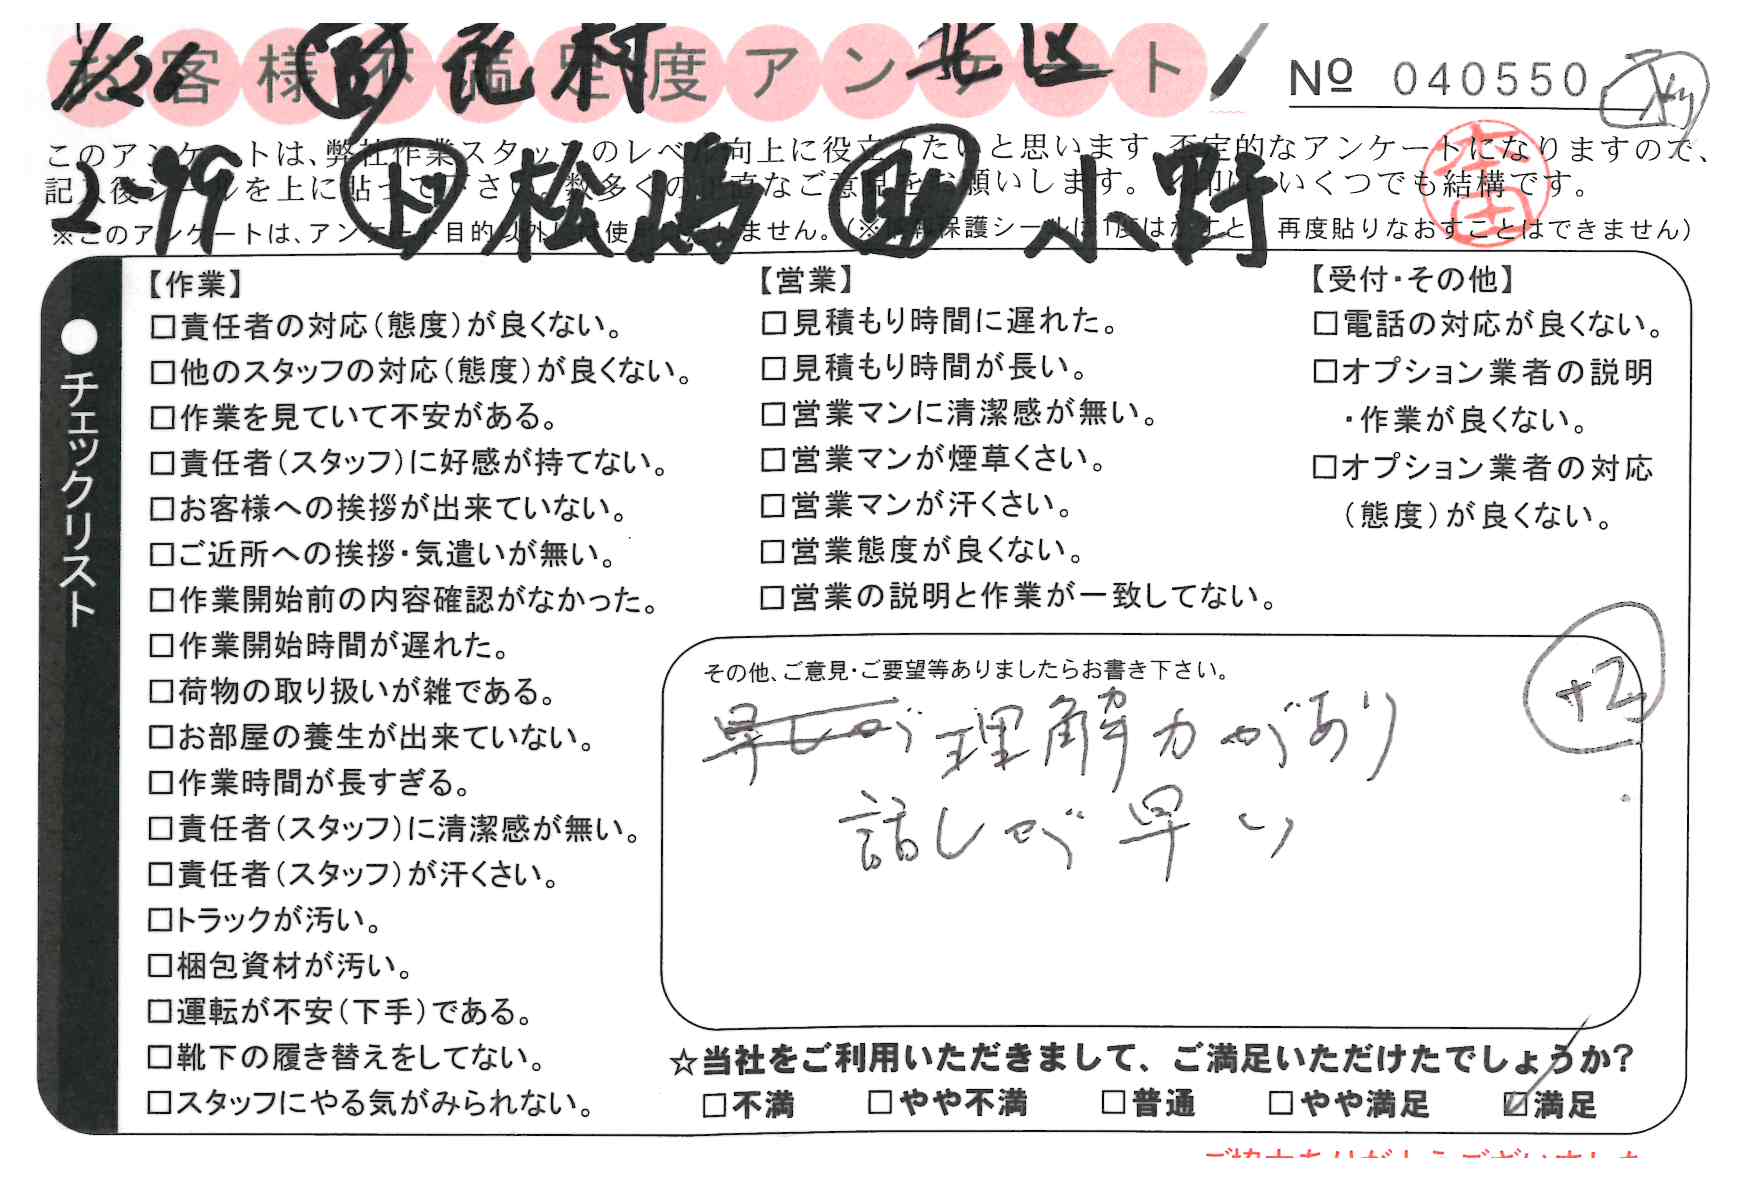 お客様不満足度アンケート
1/26 花村 北区
№ 040550
このアンケートは、弊社作業スタッフのレベル向上に役立てたいと思います。不定的なアンケートになりますので、
記入後シールを上に貼って下さい。数多くの正直なご意見をお願いします。 いくつでも結構です。
2-99 ド 松嶋 助 小野
※このアンケートは、アンケート目的以外に使用いたしません。(※ 保護シールは1度はがすと、再度貼りなおすことはできません)
●チェックリスト
【作業】
□責任者の対応(態度)が良くない。
□他のスタッフの対応(態度)が良くない。
□作業を見ていて不安がある。
□責任者(スタッフ)に好感が持てない。
□お客様への挨拶が出来ていない。
□ご近所への挨拶・気遣いが無い。
□作業開始前の内容確認がなかった。
□作業開始時間が遅れた。
□荷物の取り扱いが雑である。
□お部屋の養生が出来ていない。
□作業時間が長すぎる。
□責任者(スタッフ)に清潔感が無い。
□責任者(スタッフ)が汗くさい。
□トラックが汚い。
□梱包資材が汚い。
□運転が不安(下手)である。
□靴下の履き替えをしてない。
□スタッフにやる気がみられない。
【営業】
□見積もり時間に遅れた。
□見積もり時間が長い。
□営業マンに清潔感が無い。
□営業マンが煙草くさい。
□営業マンが汗くさい。
□営業態度が良くない。
□営業の説明と作業が一致してない。
【受付・その他】
□電話の対応が良くない。
□オプション業者の説明
・作業が良くない。
□オプション業者の対応
(態度)が良くない。
その他、ご意見・ご要望等ありましたらお書き下さい。
+2
理解力があり
話しが早い
☆当社をご利用いただきまして、ご満足いただけたでしょうか?
□不満 □やや不満 □普通 □やや満足 ☑満足
ご協力ありがとうございました